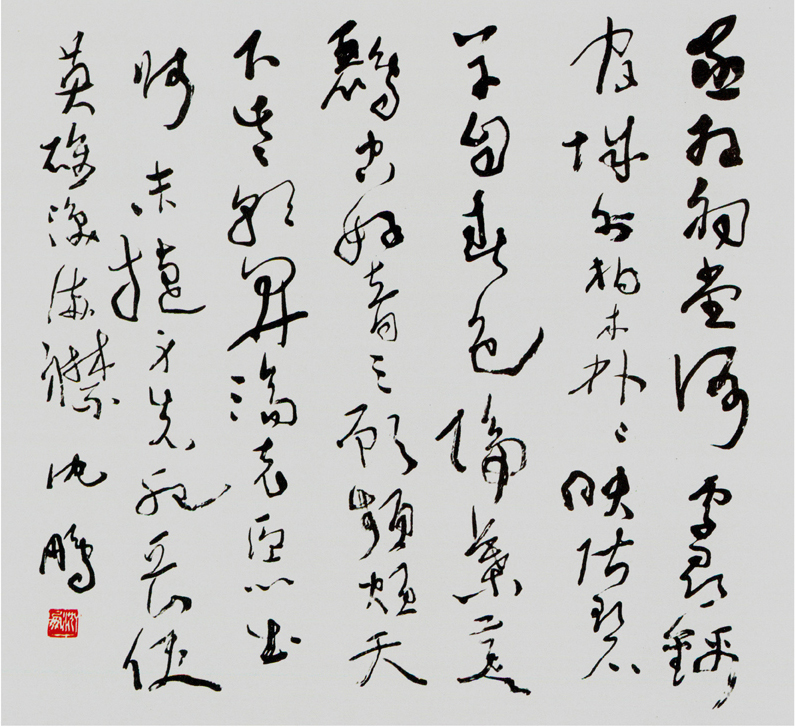 丞相祠堂何處尋錦
官城外柏森森映階碧
草自春色隔葉黃
鸝空好音三顧頻煩天
下計兩朝開濟老臣心出
師未捷身先死長使
英雄淚滿襟 沈鵬